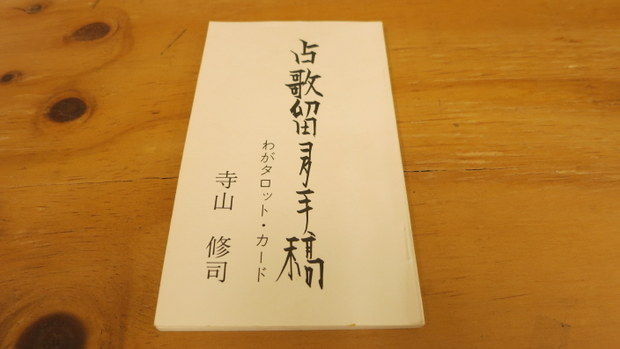 占歌留多手稿
わがタロット・カード
寺山 修司